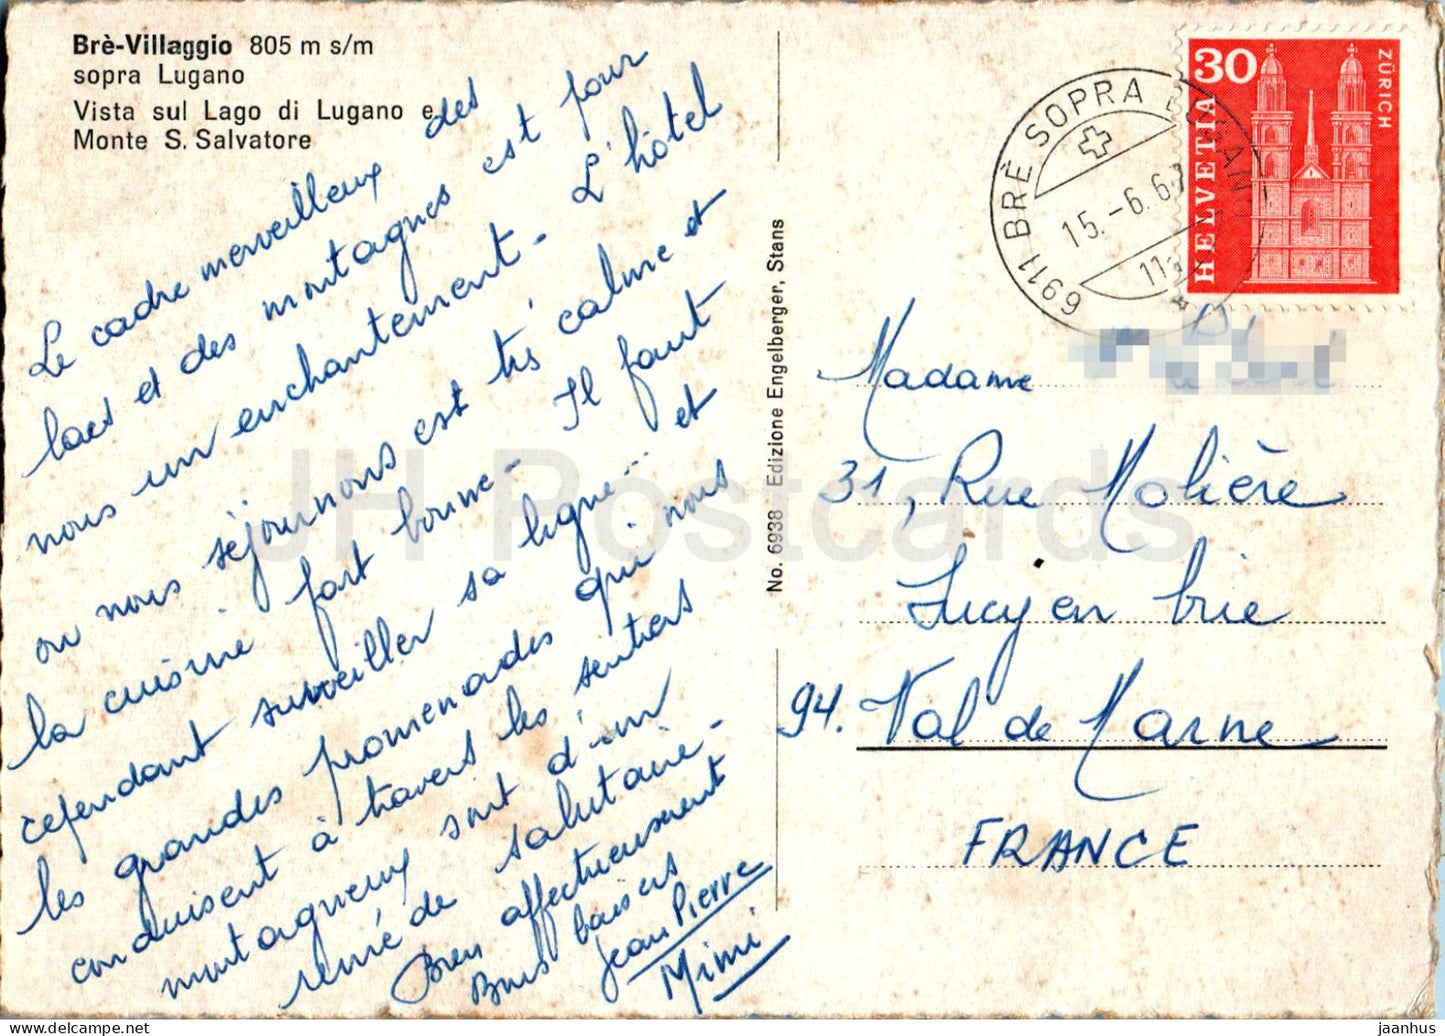 Brè-Villaggio 805 m s/m
sopra Lugano
Vista sul Lago di Lugano e
Monte S. Salvatore
Le cadre merveilleux des
lacs et des montagnes est pour
nous un enchantement - L'hôtel
ou nous séjournons est très calme et
la cuisine fort bonne - Il faut
cependant surveiller sa ligne... et
les grandes promenades qui nous
conduisent à travers les sentiers
montagneux sont d'un
remède salutaire -
Bien affectueusement
Bons baisers
Jean Pierre
Mimi
No. 6938 Edizione Engelberger, Stans
6911 BRÈ SOPRA LUGANO
15.-6.67
11
30
HELVETIA
ZÜRICH
Madame
31, Rue Molière
Lucy en brie
94. Val de Marne
FRANCE
JH Postcards
delcampe.net
jaanhus